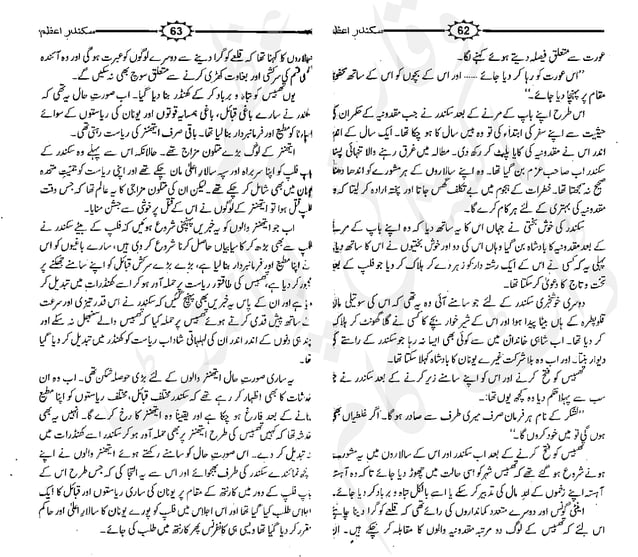 62 سکندر اعظم
عورت سے متعلق فیصلہ دیتے ہوئے کہنے لگا۔
”اس عورت کو رہا کر دیا جائے ...... اور اس کے بچوں کو اس کے ساتھ محفوظ
مقام پر پہنچا دیا جائے۔“
اس طرح اپنے باپ کے مرنے کے بعد سکندر نے جب مقدونیہ کے حکمران کی
حیثیت سے اپنے سفر کی ابتداء کی تو وہ بیس سال کا ہو چکا تھا۔ ایک سال کے اندر
اندر اس نے مقدونیہ کی کایا پلٹ کر رکھ دی۔ مطالعہ میں غرق رہنے والا تنہائی پسند
سکندر اب صاحب عزم بن گیا تھا۔ وہ اپنے سالاروں کے ہر مشورے کو
صحیح نہ سمجھتا تھا۔ خطرات کے ہجوم میں بے تکلف گھس جاتا اور پختہ ارادہ کر لیتا کہ وہ
مقدونیہ کی بہتری کے لئے ہر کام کرے گا۔
سکندر کی خوش بختی نے جہاں اس کا یہ ساتھ دیا کہ وہ اپنے باپ کے مرنے کے
بعد مقدونیہ کا بادشاہ بن گیا وہاں اس کی دو اور خوش بختیوں نے اس کا ساتھ دیا۔
پہلی یہ کہ کسی نے اس کے ایک رشتہ دار کو زہر دے کر ہلاک کر دیا جو فلپ کے بعد
تخت و تاج کا دعویٰ کر سکتا تھا۔
دوسری خوشخبری سکندر کے لئے جو سامنے آئی وہ یہ تھی کہ اس کی سوتیلی ماں
قلوپطرہ کے ہاں بیٹا پیدا ہوا اور اس کے شیر خوار بچے کا کسی نے گلا گھونٹ کر ہلاک کر
دیا تھا۔ اب شاہی خاندان میں سے کوئی بھی ایسا نہ رہا جو سکندر کے راستے کی
دیوار بنتا۔ اور اب وہ بلا شرکت غیرے یونان کا بادشاہ کہلا سکتا تھا۔
تھیبس کو فتح کرنے اور اس کو اپنے سامنے زیر کرنے کے بعد سکندر نے جو
سب سے پہلا حکم دیا وہ کچھ یوں تھا:
”لشکر کے نام ہر فرمان صرف میری طرف سے صادر ہو گا۔ اگر غلطیاں بھی
ہوں گی تو میں خود کروں گا۔“
تھیبس کو فتح کرنے کے بعد اب سکندر اور اس کے سالاروں میں یہ مشورے
ہونے شروع ہو گئے تھے کہ تھیبس شہر کو اسی حالت میں چھوڑ دیا جائے تاکہ وہ آہستہ
آہستہ اپنے زخموں کے اندمال کی تدبیر کر سکے یا اسے بالکل تباہ و برباد کر دیا جائے۔
اینٹی گونس اور دوسرے متعدد کمانداروں کی رائے تھی کہ قلعے کو گرا دینا چاہئے
اس لئے کہ تھیبس کے لوگ دو مرتبہ مقدونیہ والوں کا مقابلہ کر چکے ہیں۔
63 سکندر اعظم
سالاروں کا کہنا تھا کہ قلعے کو گرا دینے سے دوسرے لوگوں کو عبرت ہو گی اور وہ آئندہ
کسی قسم کی سرکشی اور بغاوت کھڑی کرنے سے متعلق سوچ بھی نہ سکیں گے۔
یوں تھیبس کو تباہ و برباد کر کے کھنڈر بنا دیا گیا۔ اب صورت حال یہ تھی کہ
سکندر نے سارے باغی قبائل، باغی ہمسایہ قوتوں اور یونان کی ریاستوں کے سوائے
اسپارٹا کو مطیع اور فرمانبردار بنا لیا تھا۔ باقی صرف ایتھنز کی ریاست رہتی تھی۔
ایتھنز کے لوگ بڑے متلون مزاج تھے۔ حالانکہ اس سے پہلے وہ سکندر کے
باپ فلپ کو اپنا سربراہ اور سپہ سالار اعلیٰ مان چکے تھے اور اپنی ریاست کو جمعیت متحدہ
یونان میں بھی شامل کر چکے تھے۔ لیکن ان کی متلون مزاجی کا یہ عالم تھا کہ جس وقت
فلپ قتل ہوا تو ایتھنز کے لوگوں نے اس کے قتل پر خوشی سے جشن منایا۔
اب جو ایتھنز والوں کو یہ خبریں پہنچنی شروع ہوئیں کہ فلپ کے بیٹے سکندر نے
فلپ سے بھی بڑھ کر کامیابیاں حاصل کرنا شروع کر دی ہیں، سارے باغیوں کو اس
نے اپنا مطیع اور فرمانبردار بنا لیا ہے، بڑے بڑے سرکش قبائل کو اپنے سامنے جھکنے پر
مجبور کر دیا ہے، تھیبس کی طاقتور ریاست پر حملہ آور ہو کر اسے کھنڈرات میں تبدیل کر
دیا ہے اور ان کے پاس یہ خبریں بھی پہنچ گئیں کہ سکندر نے اس قدر تیزی اور سرعت
کے ساتھ پیش قدمی کرتے ہوئے تھیبس پر حملہ کیا کہ تھیبس والے سنبھل نہ سکے اور
چند ہی دنوں کے اندر اندر ان کی لہلہاتی شاداب ریاست کو کھنڈر میں تبدیل کر دیا گیا
تھا۔
یہ ساری صورت حال ایتھنز والوں کے لئے بڑی حوصلہ شکن تھی۔ اب وہ ان
خدشات کا بھی اظہار کر رہے تھے کہ سکندر مختلف قبائل، مختلف ریاستوں کو اپنا مطیع
بنانے کے بعد فارغ ہو چکا ہے اور یقیناً وہ اب ایتھنز کا رخ کرے گا۔ انہیں یہ بھی
خدشہ تھا کہ کہیں تھیبس کی طرح ایتھنز پر بھی حملہ آور ہو کر سکندر اسے کھنڈرات میں
تبدیل نہ کر دے۔ اس صورت حال کو سامنے رکھتے ہوئے ایتھنز والوں نے اپنے
کچھ نمائندے سکندر کی طرف بھجوائے اور اس سے یہ التجا کی کہ جس طرح اس کے
باپ فلپ کے دور میں کارنتھ کے مقام پر یونان کی ساری ریاستوں اور قبائل کا ایک
اجلاس طلب کیا گیا تھا اور اس اجلاس میں فلپ کو پورے یونان کا سالار اعلیٰ اور حاکم
مقرر کر دیا گیا تھا ویسی ہی کانفرنس پھر کارنتھ میں طلب کی جائے۔